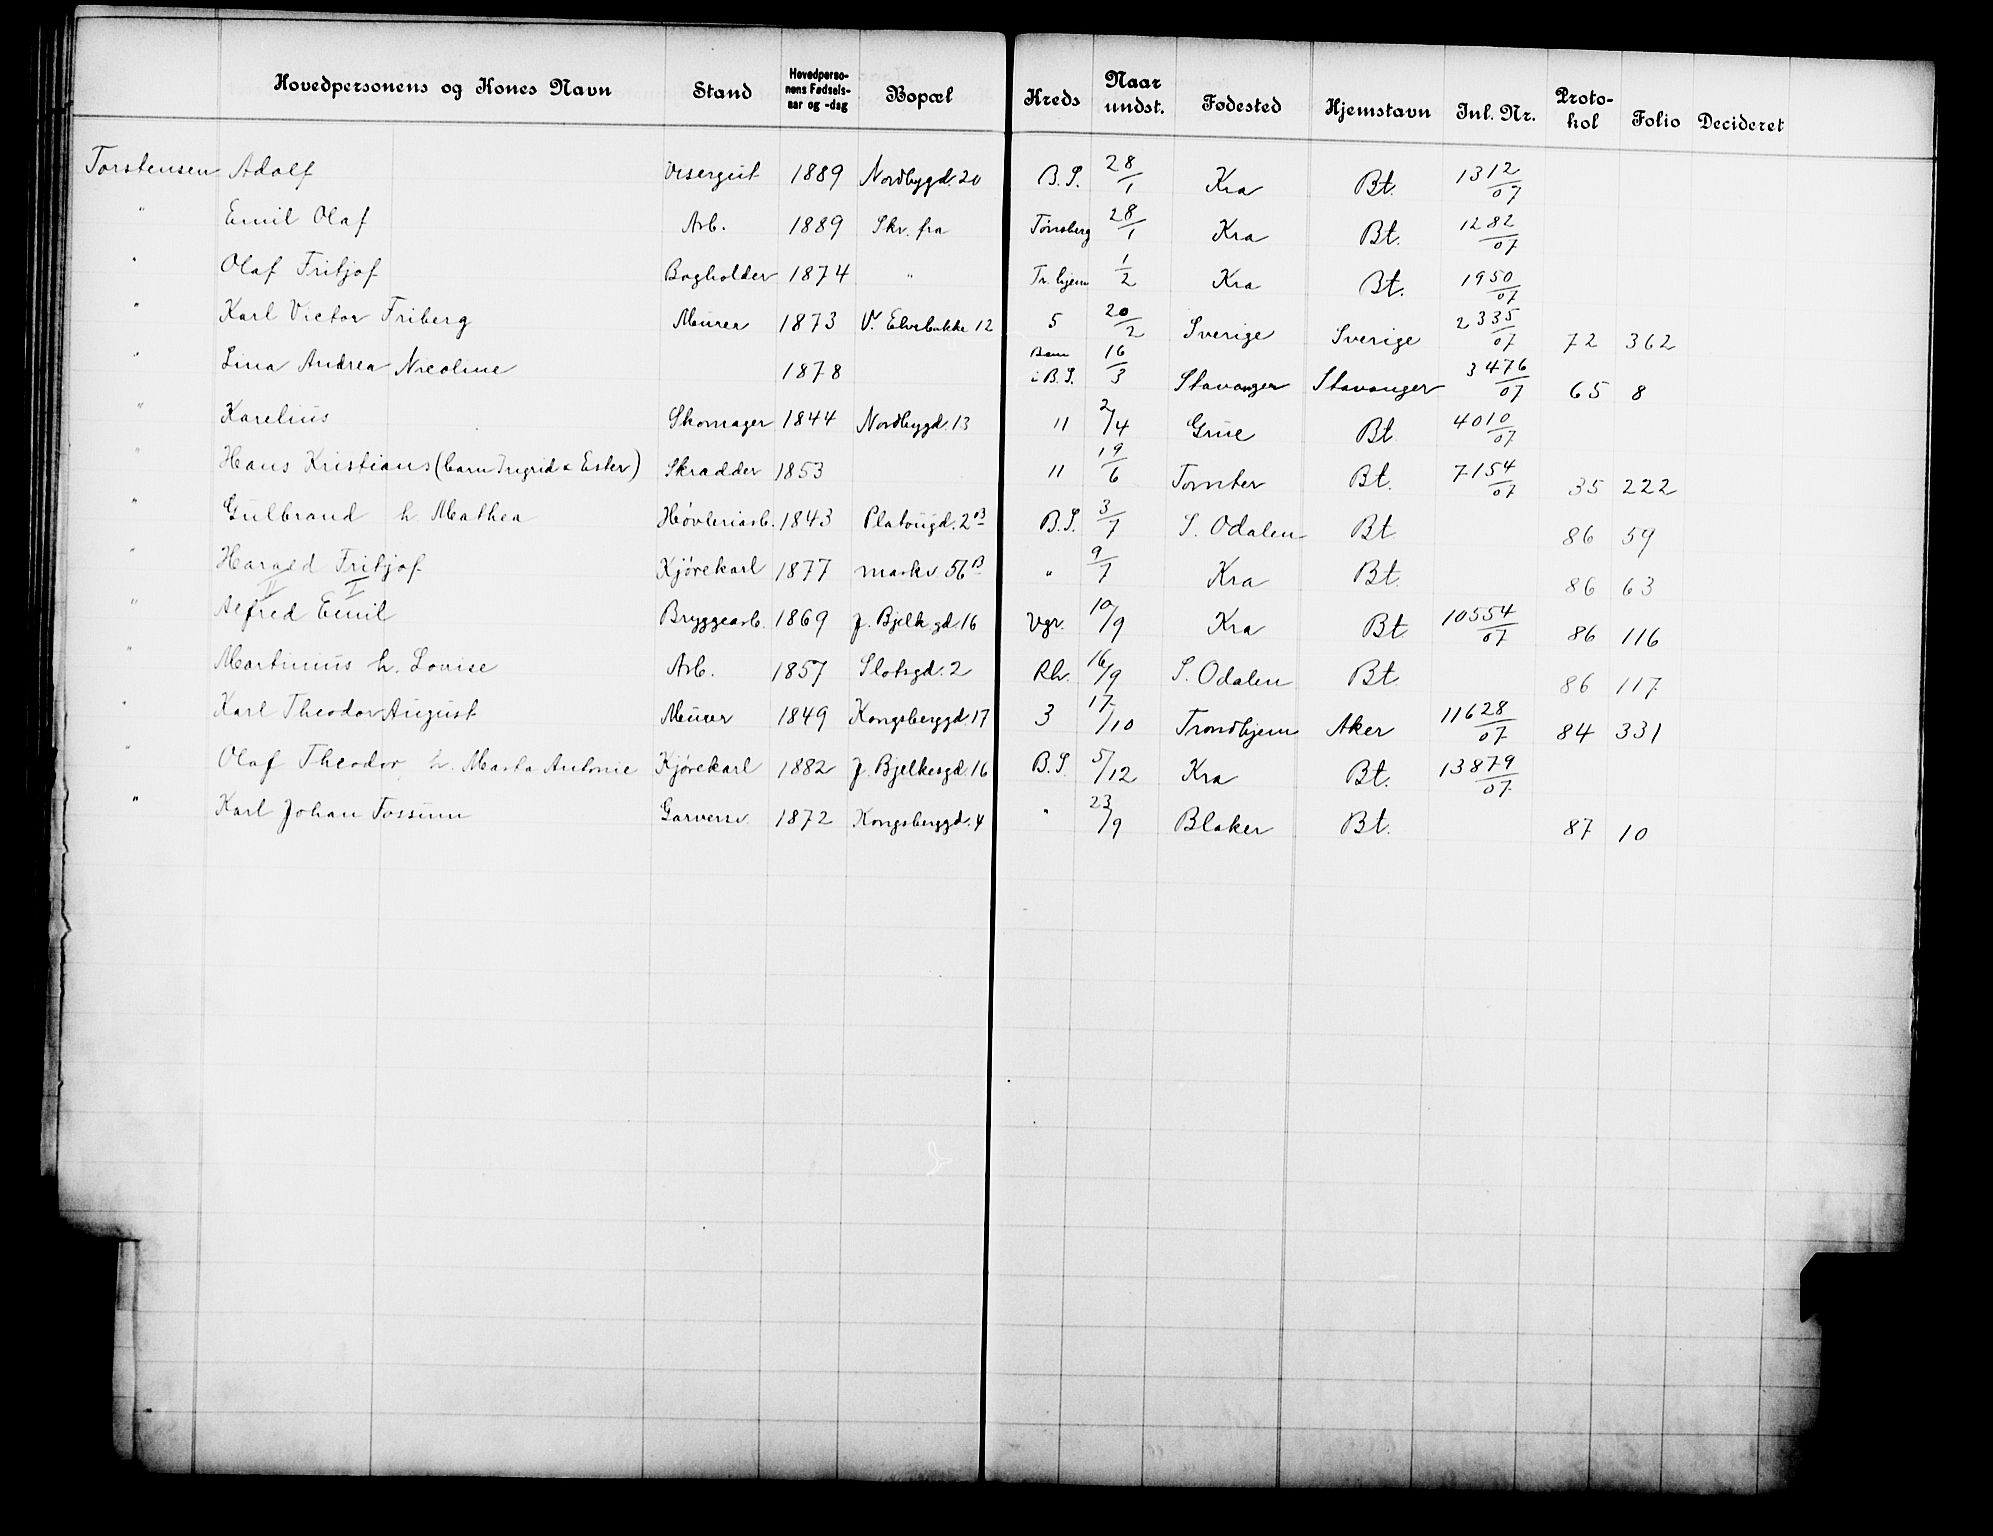 Hovedpersonens og Kones Navn | Stand | Hovedpersonens Fødselsaar og -dag | Bopæl | Kreds | Naar undst. | Fødested | Hjemstavn | Inl. Nr. | Protokol | Folio | Decideret
Torstensen Adolf | Visergut | 1889 | Nordbygd. 20 | B.S. | 28/1 | Kra | Bt. | 1312/07
" Emil Olaf | Arb. | 1889 | Skv. fra | Tønsberg | 28/1 | Kra | Bt. | 1282/07
" Olaf Fritjof | Bogholder | 1874 | " | Tr.hjem | 1/2 | Kra | Bt. | 1950/07
" Karl Victor Friberg | Murer | 1873 | V. Elvebakke 12 | 5 | 20/2 | Sverige | Sverige | 2335/07 | 72 | 362
" Lina Andrea Nicoline | 1878 | Barn i B.S. | 16/3 | Stavanger | Stavanger | 3476/07 | 65 | 8
" Karelius | Skomager | 1844 | Nordbygd. 13 | 11 | 2/4 | Grue | Bt. | 4010/07
" Hans Kristians (barn Ingrid & Ester) | Skrædder | 1853 | 11 | 19/6 | Tomter | Bt. | 7154/07 | 35 | 222
" Gulbrand h Mathea | Høvleriarb. | 1843 | Platougd. 2B | B.S. | 3/7 | S. Odalen | Bt. | 86 | 59
" Harald Fritjof | Kjørekarl | 1877 | Markv. 56B | " | 9/7 | Kra | Bt. | 86 | 63
II I
" Alfred Emil | Bryggearb. | 1869 | J. Bjelk gd. 16 | Vgr. | 10/9 | Kra | Bt | 10554/07 | 86 | 116
" Martinius h. Lovise | Arb. | 1857 | Slotsgd. 2 | Rh. | 16/9 | S. Odalen | Bt | 86 | 117
" Karl Theodor August | Murer | 1849 | Kongsberggd. 17 | 3 | 17/10 | Trondhjem | Aker | 11628/07 | 84 | 331
" Olaf Theodor h. Marta Antonie | Kjørekarl | 1882 | J. Bjelkesgd. 16 | B.S. | 5/12 | Kra | Bt. | 13879/07
" Karl Johan Fossum | Garversv. | 1872 | Kongsberggd. 4 | " | 23/9 | Blaker | Bt. | 87 | 10